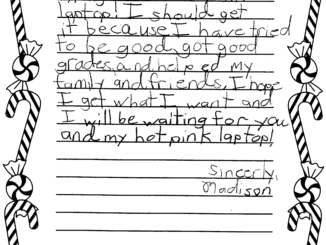 laptop! I should get
it because I have tried
to be good, got good
grades, and helped my
family and friends. I hope
I get what I want and
I will be waiting for you
and my hot pink laptop!
Sincerly,
Madison